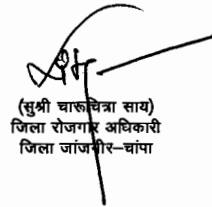 (सुश्री चारूचित्रा साय)
जिला रोजगार अधिकारी
जिला जांजगीर–चांपा